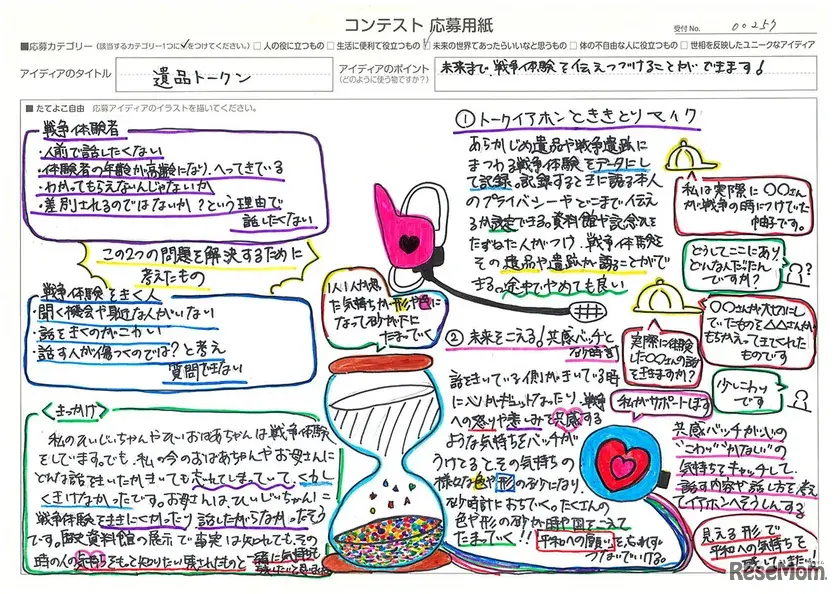 コンテスト 応募用紙
受付No. 00257
■応募カテゴリー（該当するカテゴリー1つに✓をつけてください。） □ 人の役に立つもの □ 生活に便利で役立つもの ☑ 未来の世界であったらいいなと思うもの □ 体の不自由な人に役立つもの □ 世相を反映したユニークなアイディア
アイディアのタイトル
遺品トークン
アイディアのポイント
（どのように使う物ですか？）
未来まで、戦争体験を伝えつづけることができます！
■ たてよこ自由 応募アイディアのイラストを描いてください。
戦争体験者
・人前で話したくない
・体験者の年齢が高齢になり、へってきている
・わかってもらえないんじゃないか
・差別されるのではないか？という理由で
話したくない
この2つの問題を解決するために
考えたもの
戦争体験をきく人
・聞く機会や身近な人がいない
・話をきくのがこわい
・話す人が傷つくのでは？と考え
質問できない
〈きっかけ〉
私のひいじいちゃんやひいおばあちゃんは戦争体験
をしています。でも、私の今のおばあちゃんやお母さんに
どんな話をきいたかきいても忘れてしまっていてくわし
くきけなかったです。お母さんはひいじいちゃんに
戦争体験をききにくかったり話したがらなかったそう
です。歴史資料館の展示で事実は知れても、その
時の人の気持ちをもって知りたい残されたものと
1人1人が思っ
た気持ちが形や色に
なって砂がたに
たまっていく
① トークイアホンとききとりマイク
あらかじめ遺品や戦争遺跡に
まつわる戦争体験をデータにし
て記録。記録するときに語る本人
のプライバシーやどこまで伝え
るか設定できる。資料館や記念館を
たずねた人がつけ、戦争体験を
その遺品や遺跡が語ることがで
きる。途中でやめても良い
私は実際に○○さん
が戦争の時につけていた
帽子です。
どうしてここにあり、
どんなんだったん
ですか？
○○さんが大切にし
ていたものを△△さんが
もちかえってきてくれた
ものです
実際に体験
した○○さんの話
をききますか？
少しこわい
です
私がサポートします
② 未来をこえる！共感バッチと
砂時計
話をきいている側がきいている時
に心がギュッとなったり、戦争
への怒りや悲しみで共感する
ような気持ちをバッチが
うけとるとその気持ちの
様々な色や形の砂になり、
砂時計におちていく。たくさんの
色や形の砂が時や国をこえて
たまっていく!!
平和への願いを忘れず
つなげていける。
共感バッチが心の
"こわい""かなしい"の
気持ちをキャッチして、
話す内容や話し方を考え
てイアホンへそうしんする
見える形で
平和への気持ちを
ReseMom